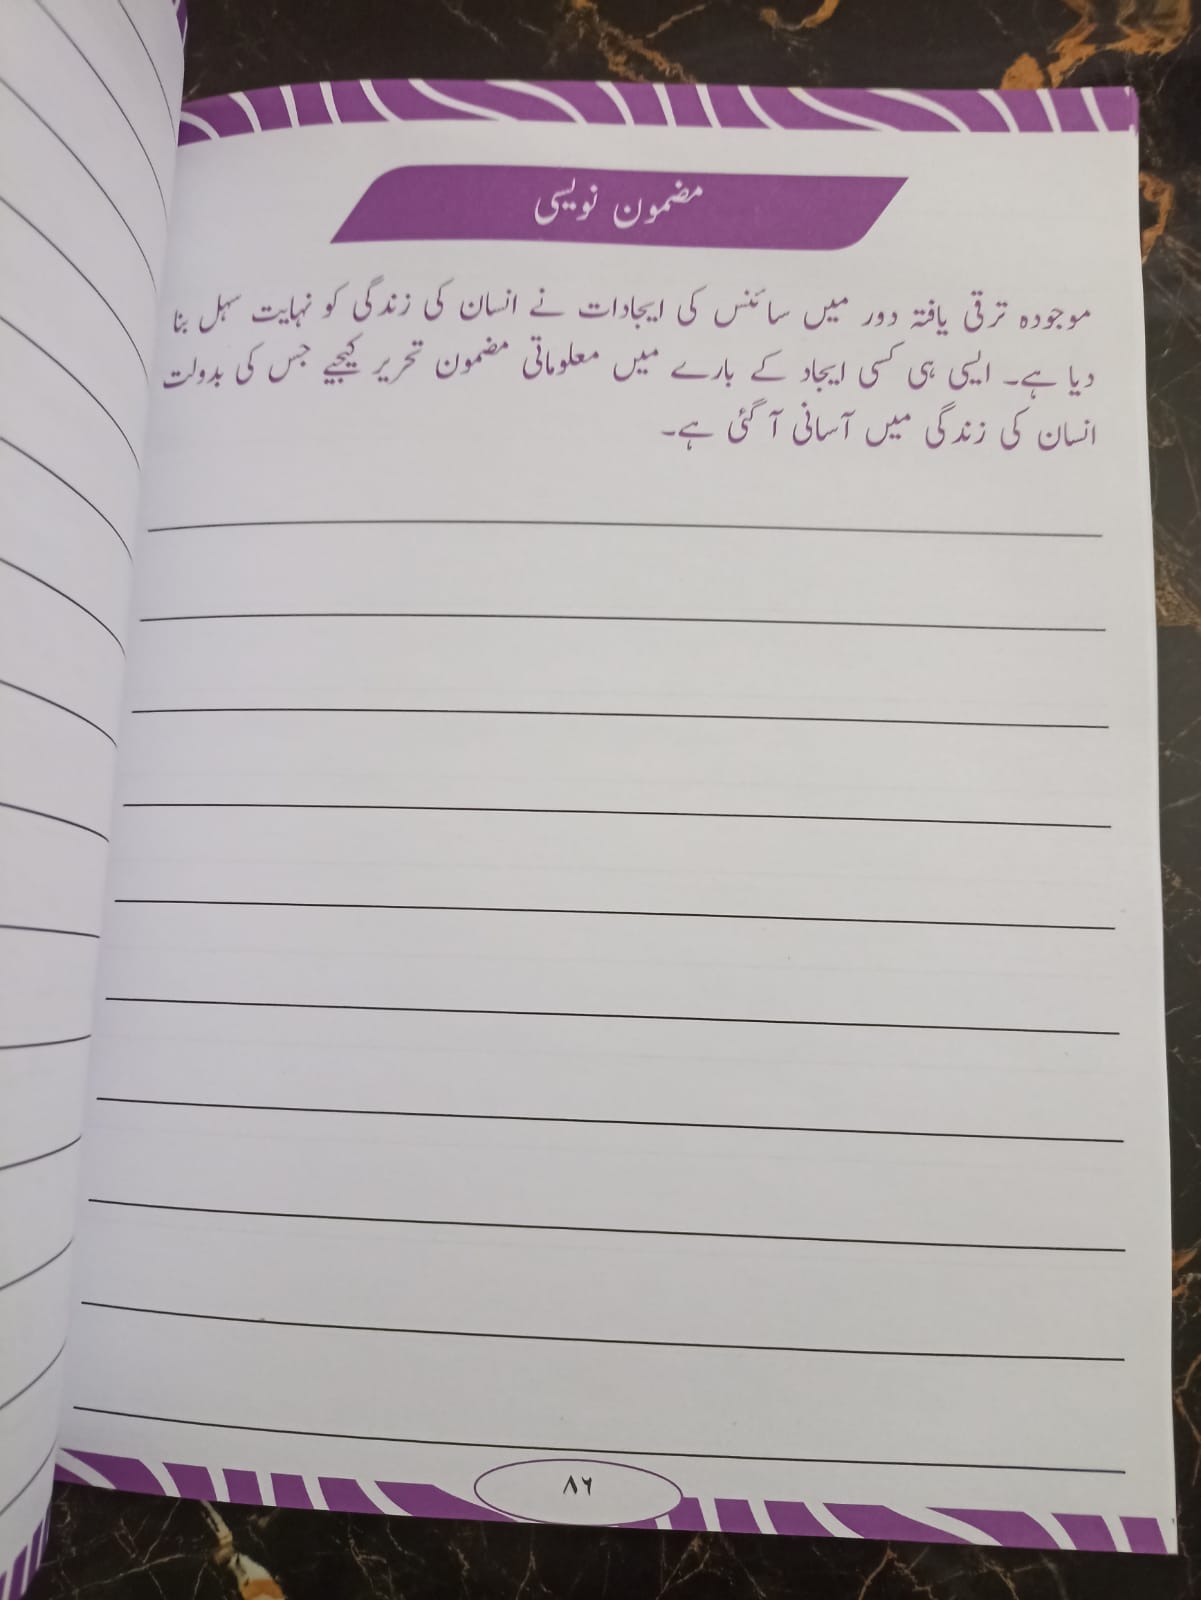 مضمون نویسی
موجودہ ترقی یافتہ دور میں سائنس کی ایجادات نے انسان کی زندگی کو نہایت سہل بنا
دیا ہے۔ ایسی ہی کسی ایجاد کے بارے میں معلوماتی مضمون تحریر کیجیے جس کی بدولت
انسان کی زندگی میں آسانی آ گئی ہے۔
۸۶